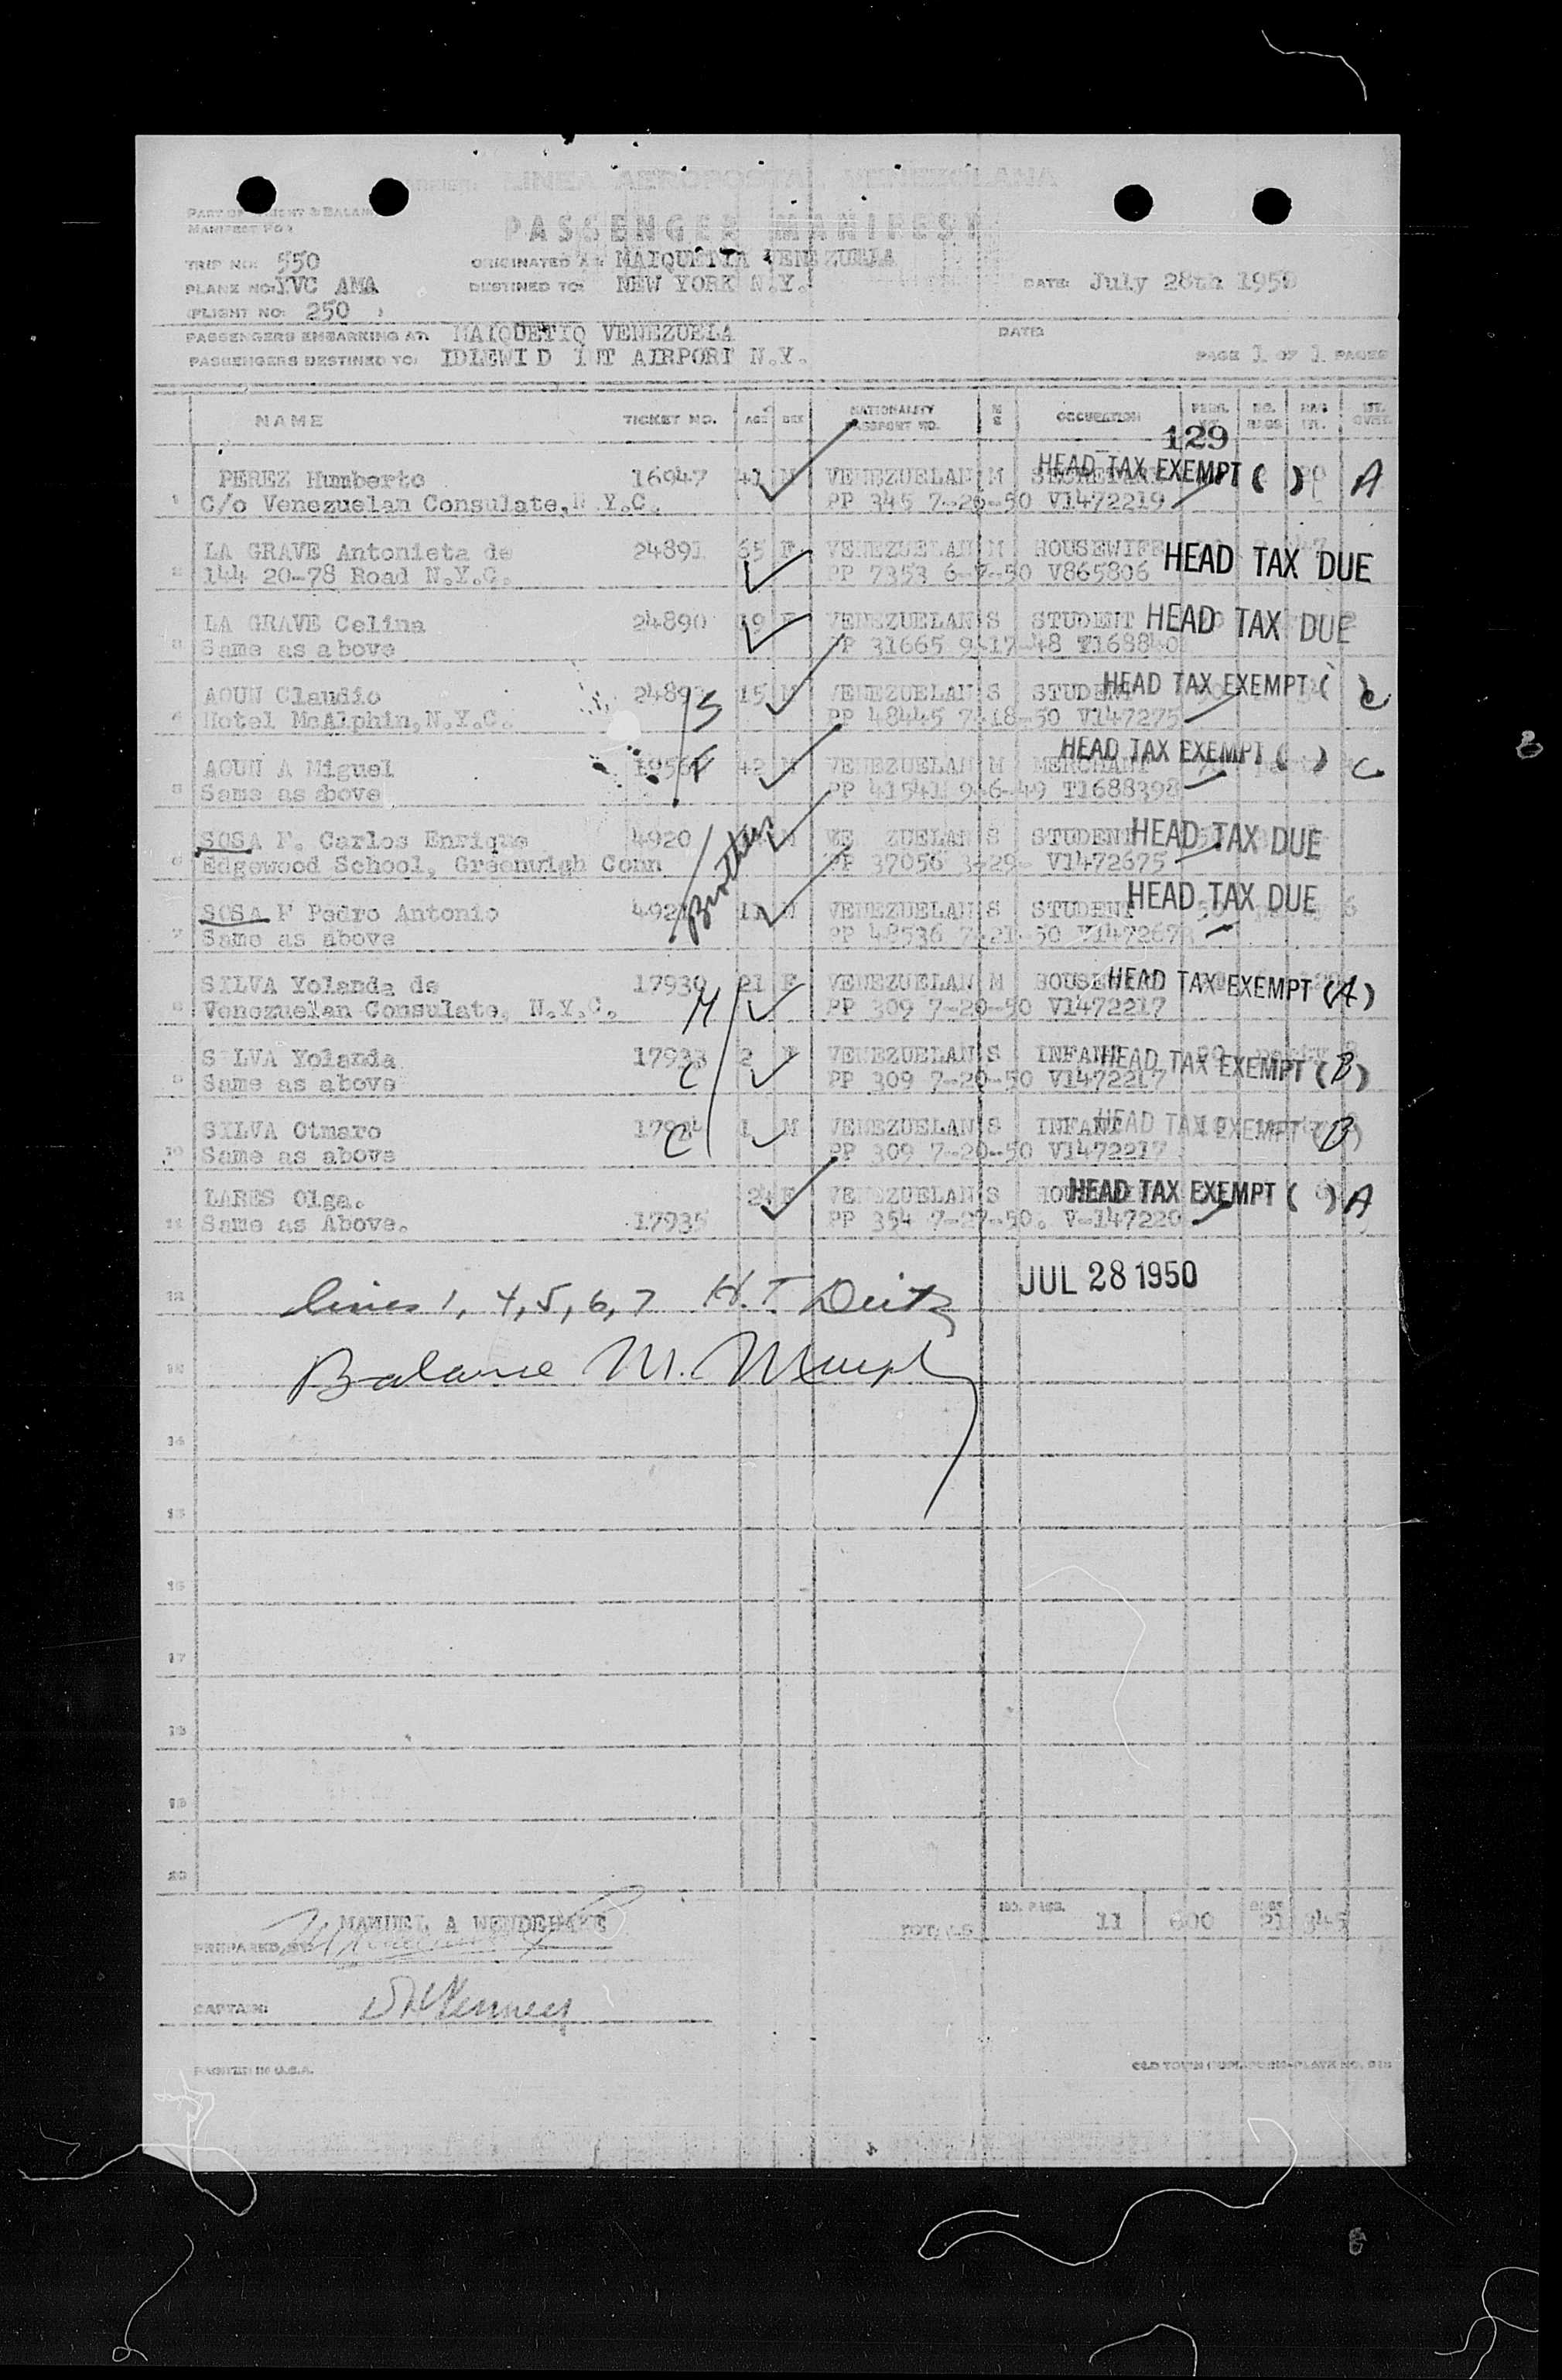 CARRIER: LINEA AEROPOSTAL VENEZOLANA
PART OF WEIGHT & BALANCE
MANIFEST FOR
PASSENGER MANIFEST
TRIP NO: 550
ORIGINATED AT: MAIQUETIA VENEZUELA
PLANE NO: YVC AMA
DESTINED TO: NEW YORK N.Y.
DATE: July 28th 1950
(FLIGHT NO: 250 )
PASSENGERS EMBARKING AT: MAIQUETIQ VENEZUELA
DATE:
PASSENGERS DESTINED TO: IDLEWI D INT AIRPORT N.Y.
PAGE 1 OF 1 PAGES
NAME TICKET NO. AGE SEX NATIONALITY PASSPORT NO. M S OCCUPATION PERS. WT. NO. BAGS BAG WT.
129
1 PEREZ Humberto 16947 41 M VENEZUELAN M HEAD TAX EXEMPT ( ) A
C/o Venezuelan Consulate, N.Y.C. PP 345 7-26-50 V1472219
2 LA GRAVE Antonieta de 24891 65 F VENEZUELAN M HOUSEWIFE HEAD TAX DUE
144 20-78 Road N.Y.C. PP 7353 6-7-50 V865806
3 LA GRAVE Celina 24890 19 F VENEZUELAN S STUDENT HEAD TAX DUE
Same as above PP 31665 9-17-48 T168840
4 AOUN Claudio 2489 S 15 M VENEZUELAN S STUDENT HEAD TAX EXEMPT ( ) C
Hotel McAlphin, N.Y.C. PP 48445 7-18-50 V147275
5 AOUN A Miguel F 42 M VENEZUELAN M MERCHANT HEAD TAX EXEMPT ( ) C
Same as above PP 41541 9-6-49 T1688398
6 SOSA F. Carlos Enrique 4920 M VE ZUELAN S STUDENT HEAD TAX DUE
Edgewood School, Greenwigh Conn Brothers PP 37056 3-29- V1472675
7 SOSA F Pedro Antonio 492 11 M VENEZUELAN S STUDENT HEAD TAX DUE
Same as above PP 48536 7-21-50 V147267
8 SILVA Yolanda de 17939 21 F VENEZUELAN M HEAD TAX EXEMPT (A)
Venezuelan Consulate, N.Y.C. M PP 309 7-20-50 V1472217
9 S LVA Yolanda 17933 2 F VENEZUELAN S INFANT HEAD TAX EXEMPT (B)
Same as above C PP 309 7-20-50 V1472217
10 SILVA Oimaro 17934 1 M VENEZUELAN S INFANT HEAD TAX EXEMPT (B)
Same as above C PP 309 7-20-50 V1472217
LARES Olga. 24 F VENEZUELAN S HEAD TAX EXEMPT ( ) A
11 Same as Above. 17935 PP 354 7-27-50. V-147220
12 lines 1, 4, 5, 6, 7 H.T Deitz JUL 28 1950
13 Balance M. Murphy
14
15
16
17
18
19
20
PREPARED BY: MANUEL A
TOTALS NO. PASS. 11 600 BAGS 21 345
CAPTAIN:
PRINTED IN U.S.A.
OLD TOWN